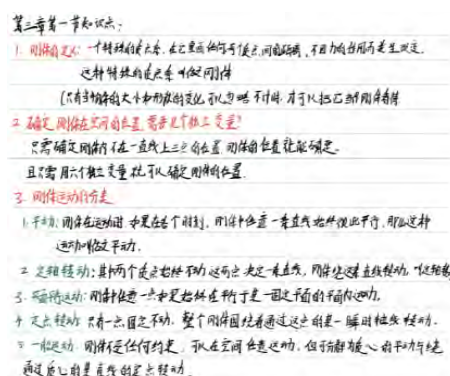 第三章第一节知识点:
1. 刚体的定义: 一个特殊的质点系, 在它里面任何两个质点间的距离, 不因力的作用而发生改变.
这种特殊的质点系叫做刚体
(只有当物体的大小和形状的变化可以忽略不计时, 才可以把它当刚体看待
2. 确定刚体在空间的位置需要几个独立变量?
只需确定刚体内不在一直线上三点的位置, 刚体的位置就能确定.
且只需用六个独立变量就可以确定刚体的位置.
3. 刚体运动的分类
1. 平动: 刚体在运动时, 如果在各个时刻, 刚体中任意一条直线始终彼此平行, 那么这种
运动叫做平动.
2. 定轴转动: 其中两个质点始终不动, 这两点决定一条直线, 刚体绕这条直线转动,
3. 平面平行运动: 刚体中任意一点如果始终在平行于某一固定平面的平面内运动.
4. 定点转动: 只有一点固定不动, 整个刚体围绕着通过这点的某一瞬时轴线转动.
5. 一般运动: 刚体不受任何约束, 可以在空间任意运动, 但可分解为质心的平动与绕
通过质心的某直线的定点转动.